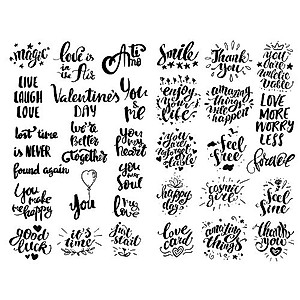 magic
LIVE
LAUGH
LOVE
lost time
is NEVER
found again
You
make
me
happy
good
luck
love is
in the
Air
Valentine's
DAY
We're
Better
Together
You
it's
time
Ti
Amo
You
&
Me
You are
my heart
You are
my soul
my love
just
start
Smile
enjoy
your
life
happy
day
love
card
Thank
you
amazing
things
will
happen
feel
free
cosmic
girl
amazing
things
LOVE
MORE
WORRY
LESS
feel
fine
thank
you